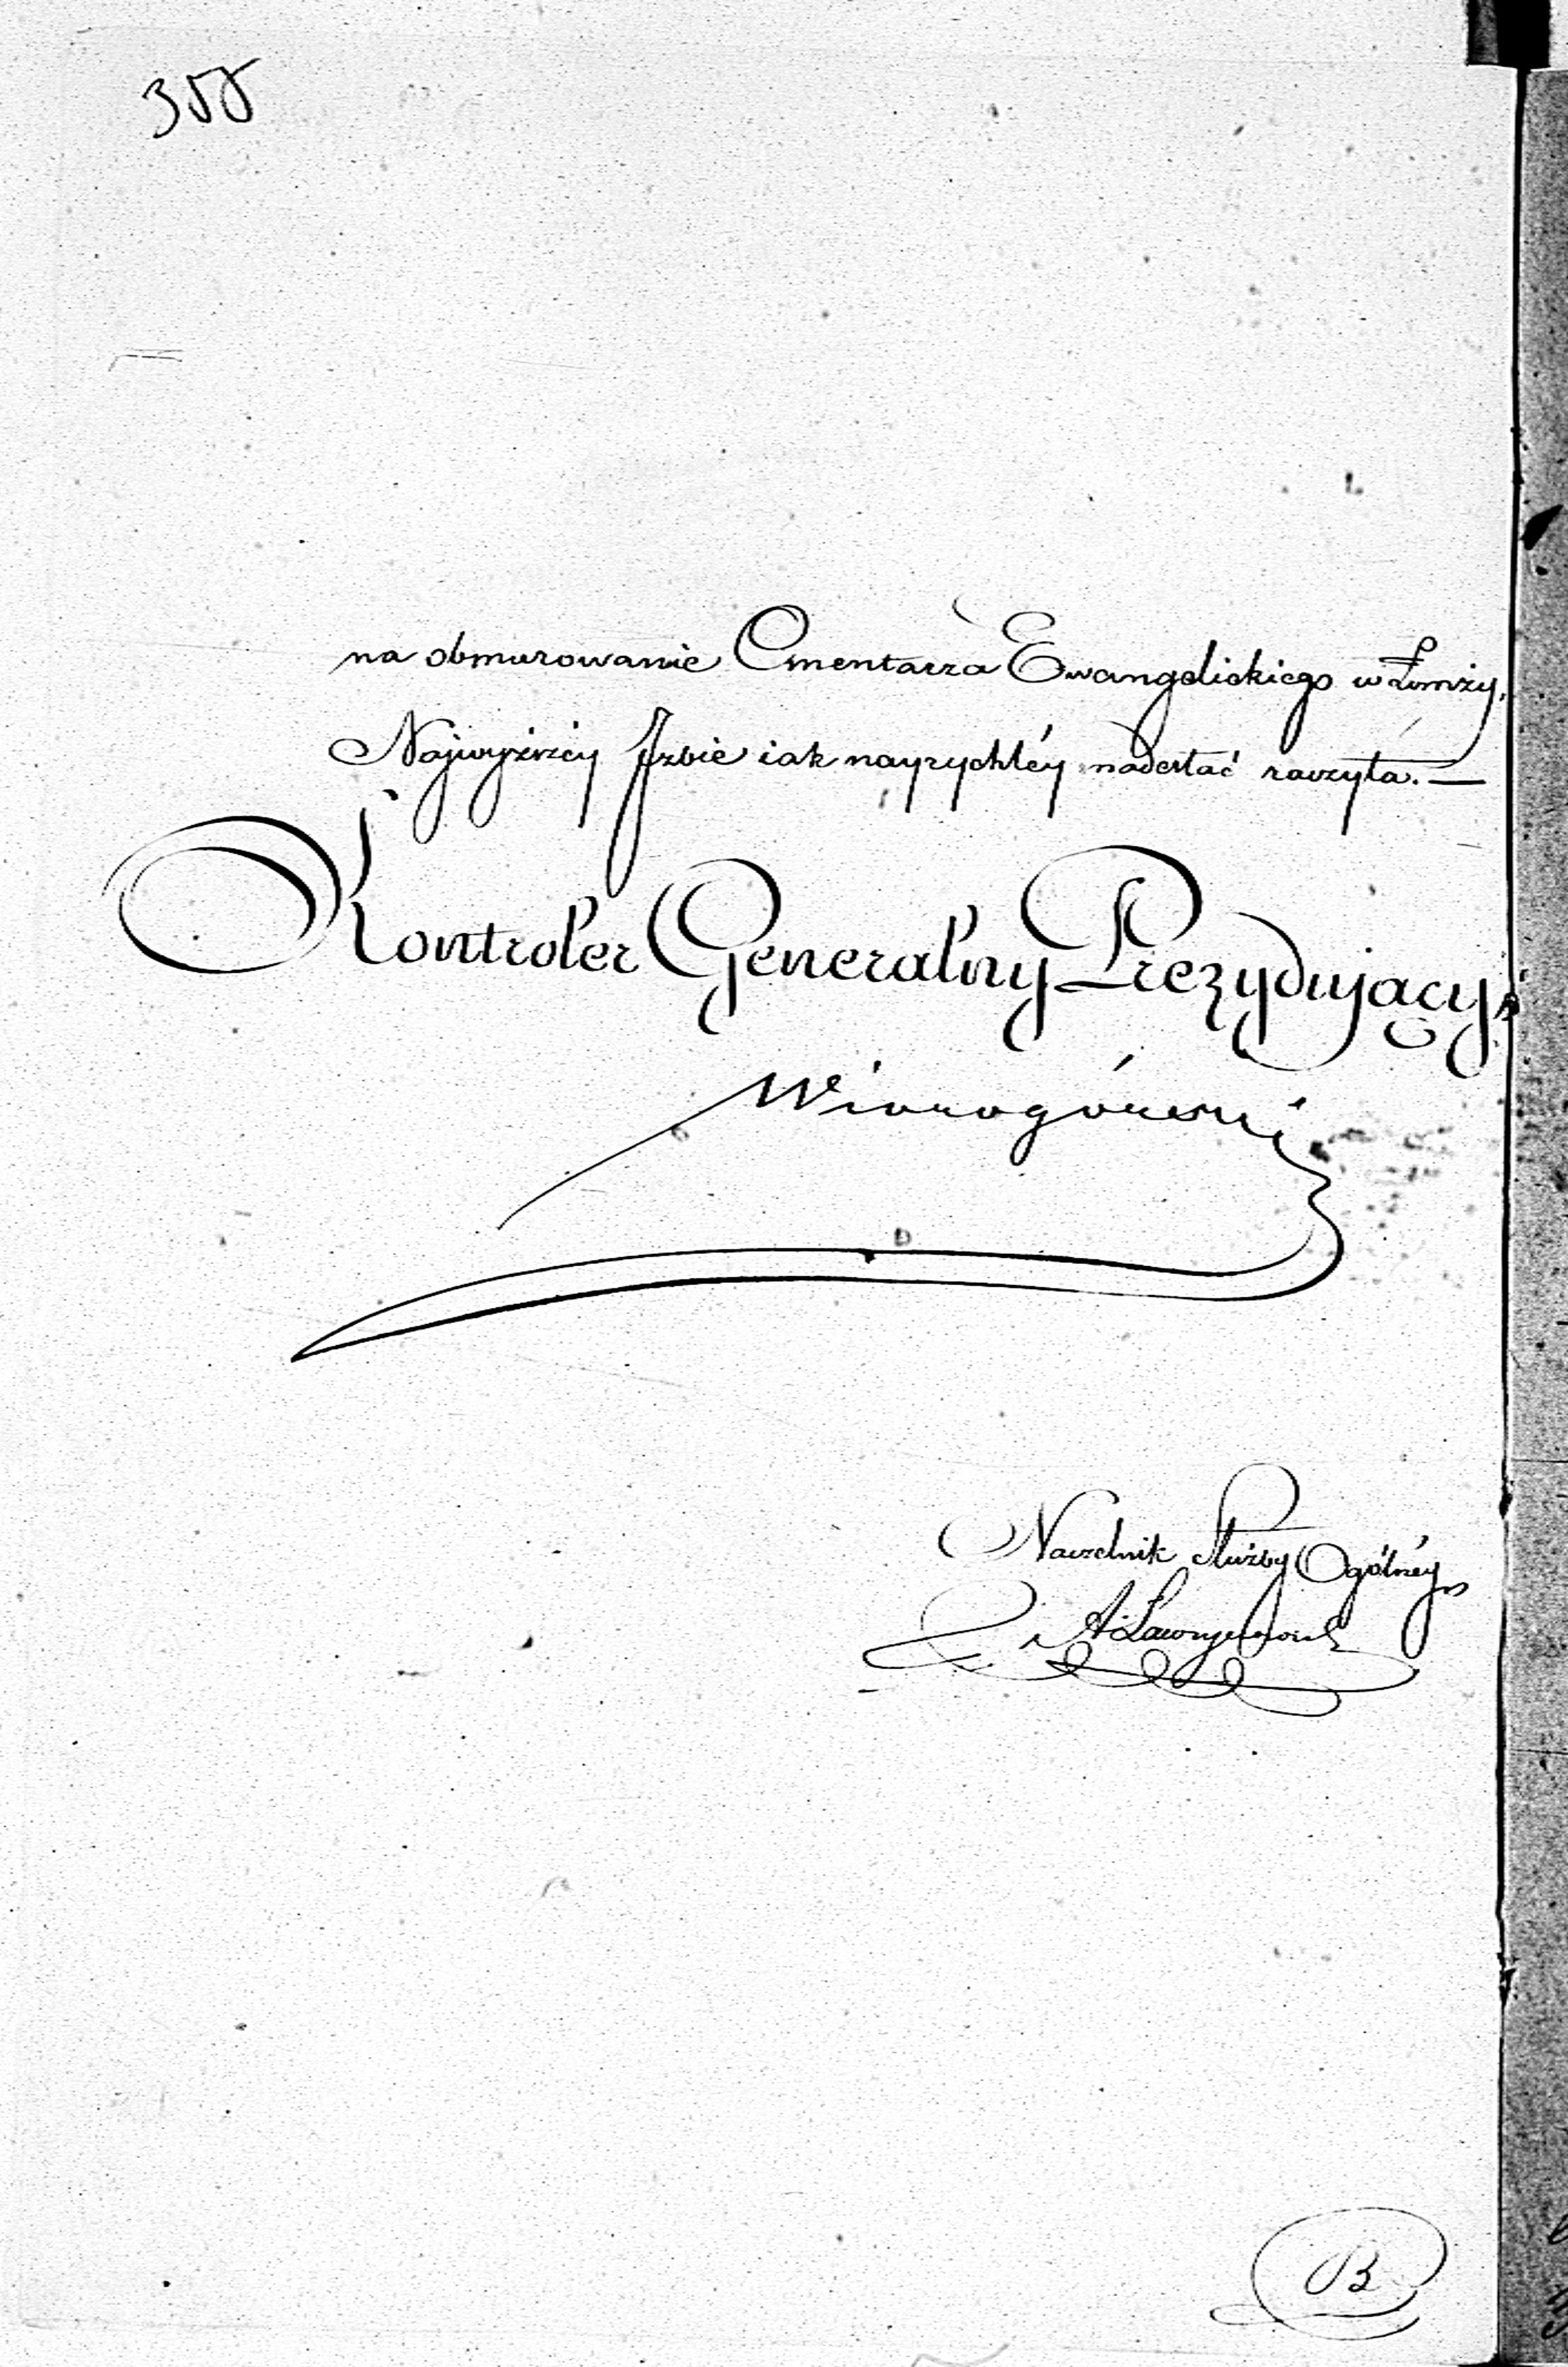 355
na obmurowanie Cmentarza Ewangelickiego w Łomży,
Najwyższéy Jzbie iak nayrychléy nadesłać raczyła. —
Kontroler Generalny Prezydujący
Wiorogórski
Naczelnik Służby Ogólnéy
B